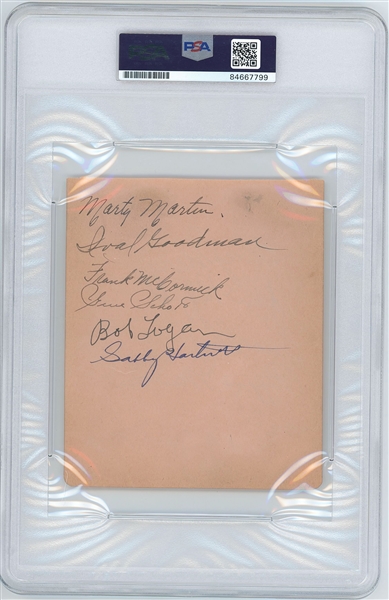 PSA
84667799
Marty Martin.
Ival Goodman
Frank McCormick
Gene Schott
Bob Logan
Gabby Hartnett